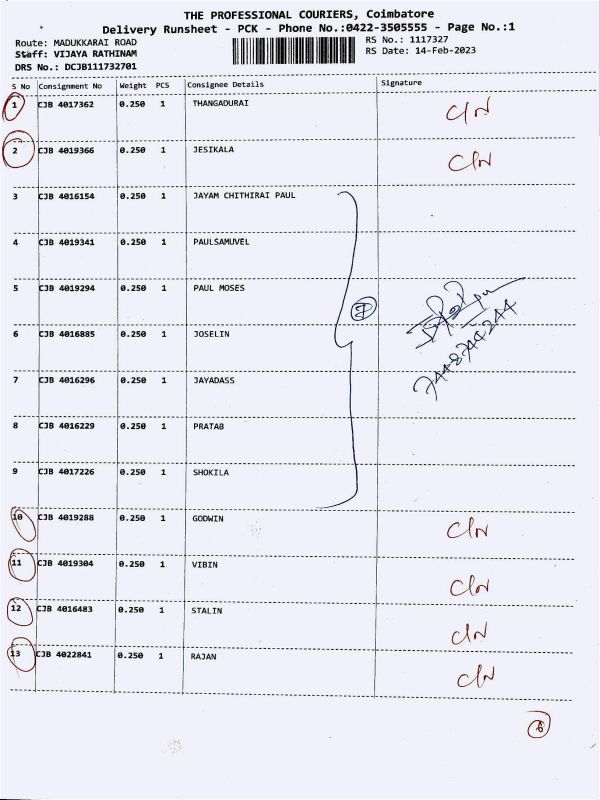 THE PROFESSIONAL COURIERS, Coimbatore
Delivery Runsheet - PCK - Phone No.:0422-3505555 - Page No.:1
Route: MADUKKARAI ROAD RS No.: 1117327
Staff: VIJAYA RATHINAM RS Date: 14-Feb-2023
DRS No.: DCJB111732701
S No Consignment No Weight PCS Consignee Details Signature
1 CJB 4017362 0.250 1 THANGADURAI C/N
2 CJB 4019366 0.250 1 JESIKALA C/N
3 CJB 4016154 0.250 1 JAYAM CHITHIRAI PAUL
4 CJB 4019341 0.250 1 PAULSAMUVEL
5 CJB 4019294 0.250 1 PAUL MOSES
7
6 CJB 4016885 0.250 1 JOSELIN
7448744244
7 CJB 4016296 0.250 1 JAYADASS
8 CJB 4016229 0.250 1 PRATAB
9 CJB 4017226 0.250 1 SHOKILA
10 CJB 4019288 0.250 1 GODWIN C/N
11 CJB 4019304 0.250 1 VIBIN C/N
12 CJB 4016483 0.250 1 STALIN C/N
13 CJB 4022841 0.250 1 RAJAN C/N
6